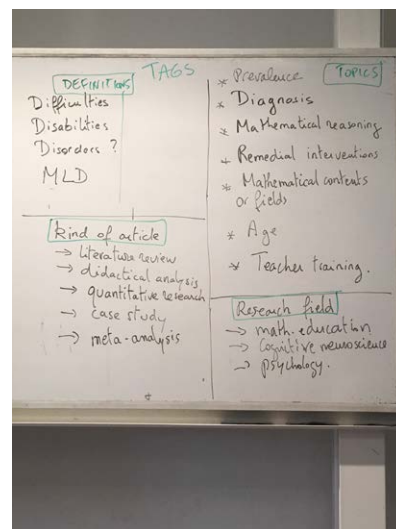 TAGS
DEFINITIONS
Difficulties
Disabilities
Disorders ?
MLD
Kind of article
→ literature review
→ didactical analysis
→ quantitative research
→ case study
→ meta-analysis
TOPICS
* Prevalence
* Diagnosis
* Mathematical reasoning
* Remedial interventions
* Mathematical contents
or fields
* Age
* Teacher training.
Research field
→ math. education
→ Cognitive neuroscience
→ psychology.